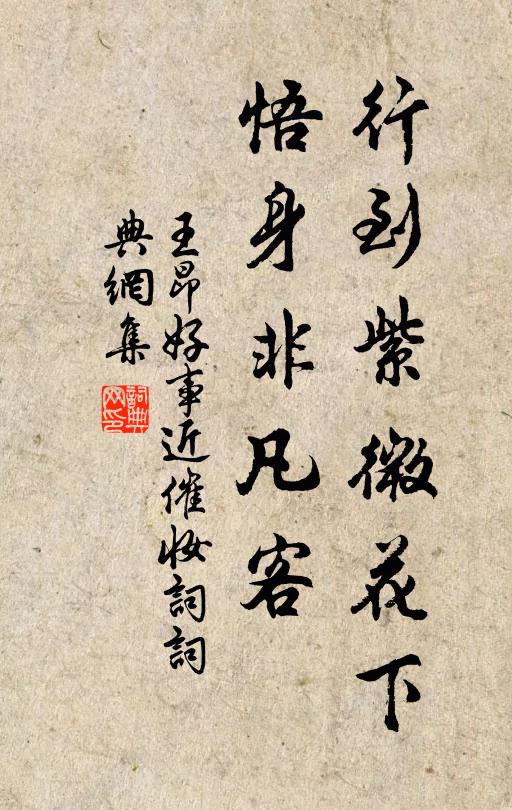 行到紫微花下
悟身非凡客
王昂好事近催妝詞詞
典網集
詞典
网印